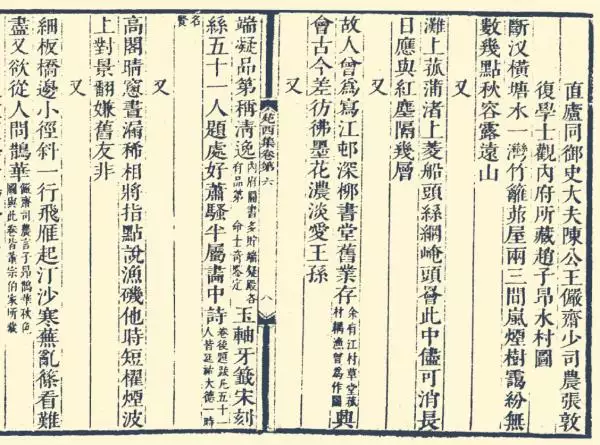 直廬同御史大夫陳公王儼齋少司農張敦
復學士觀內府所藏趙子昂水村圖
斷汊橫塘水一灣竹籬茆屋兩三間嵐煙樹靄紛無
數幾點秋容露遠山
又
灘上菰蒲渚上菱船頭絲網崦頭罾此中儘可消長
日應與紅塵隔幾層
又
故人曾爲寫江邨深柳書堂舊業存余有江村草堂菰村耦漁曾爲作圖興
會古今差彷彿墨花濃淡愛王孫
又
苑西集卷第六 八
端凝品第稱清逸內府圖書多貯端凝殿各有品第命士奇鑒定玉軸牙籤宋刻
絲五十一人題處好蕭騷半屬畵中詩卷後題跋凡五十一人皆延祐大德一時
名賢
又
高閣晴窻晝漏稀相將指點說漁磯他時短櫂煙波
上對景翻嫌舊友非
又
細板橋邊小徑斜一行飛雁起汀沙寒蕪亂篠看難
盡又欲從人問鵲華儼齋司農言子昂鵲華秋色圖與此卷皆蕭宗伯家所藏